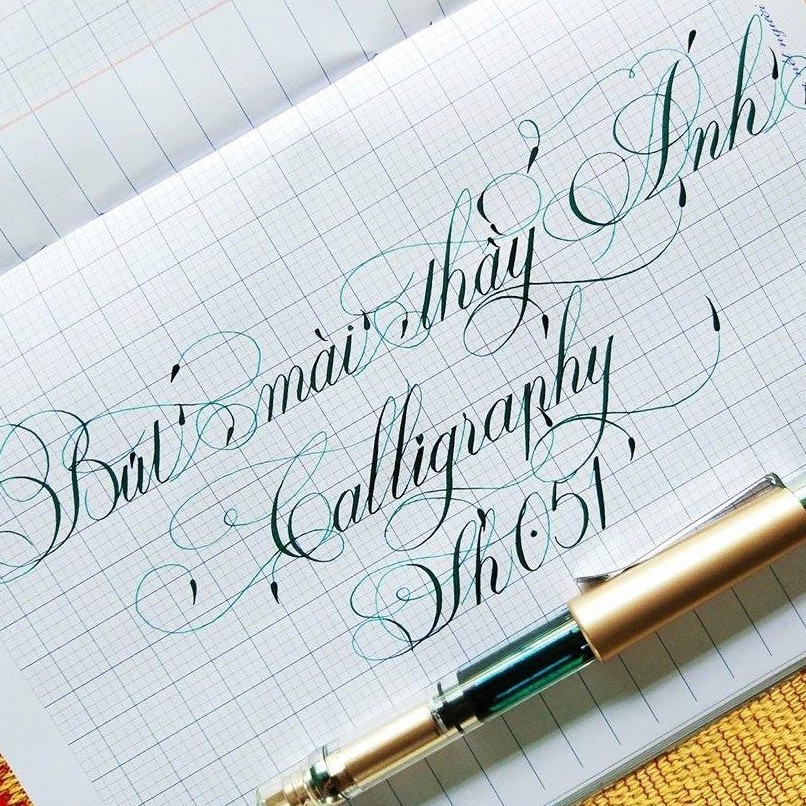 Bút mài thầy Ánh
Calligraphy
Sh 051